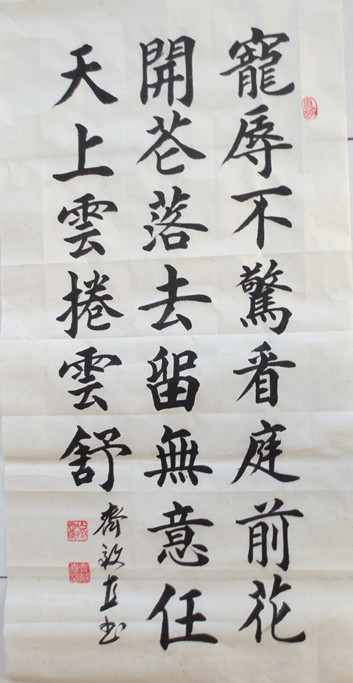 寵辱不驚看庭前花
開花落去留無意任
天上雲捲雲舒